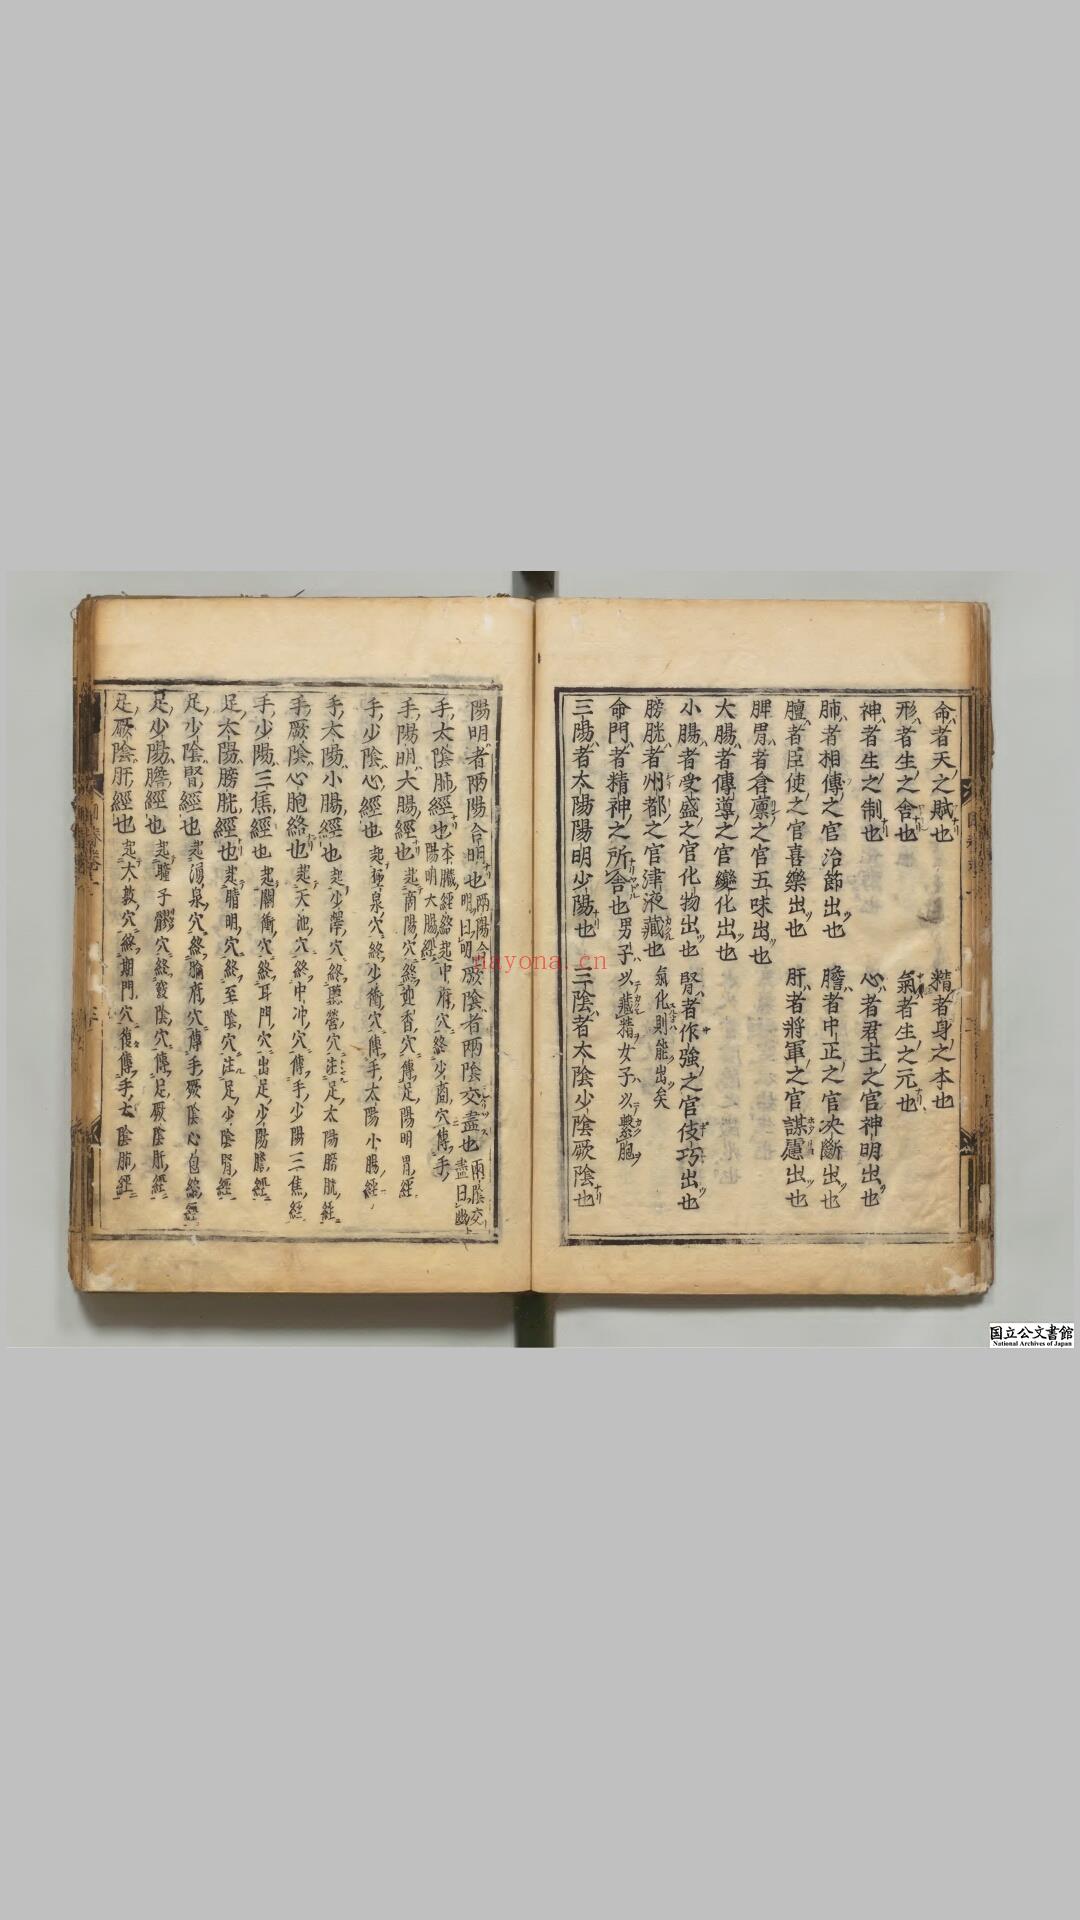 命者天之賦也　精者身之本也
形者生之舍也　氣者生之元也
神者生之制也　心者君主之官神明出也
肺者相傳之官治節出也　膽者中正之官决斷出也
膻者臣使之官喜樂出也　肝者將軍之官謀慮出也
脾胃者倉廪之官五味出也
大腸者傳導之官變化出也
小腸者受盛之官化物出也　腎者作強之官伎巧出也
膀胱者州都之官津液藏也　氣化則能出矣
命門者精神之所舍也　男子以藏精女子以繫胞
三陽者太陽陽明少陽也　三陰者太陰少陰厥陰也
陽明者兩陽合明也　兩陽合明曰明　厥陰者兩陰交盡也　兩陰交盡曰幽
手太陰肺經也　本臟經絡起中府穴終少商穴傳手陽明大腸經
手陽明大腸經也　起商陽穴終迎香穴傳足陽明胃經
手少陰心經也　起極泉穴終少衝穴傳手太陽小腸經
手太陽小腸經也　起少澤穴終聽營穴注足太陽膀胱經
手厥陰心胞絡也　起天池穴終中冲穴傳手少陽三焦經
手少陽三焦經也　起關衝穴終耳門穴出足少陽膽經
足太陽膀胱經也　起睛明穴終至陰穴注足少陰腎經
足少陰腎經也　起湧泉穴終腧府穴傳手厥陰心包絡經
足少陽膽經也　起瞳子髎穴終竅陰穴傳足厥陰肝經
足厥陰肝經也　起大敦穴終期門穴復傳手太陰肺經
nayona.cn
国立公文書館
National Archives of Japan